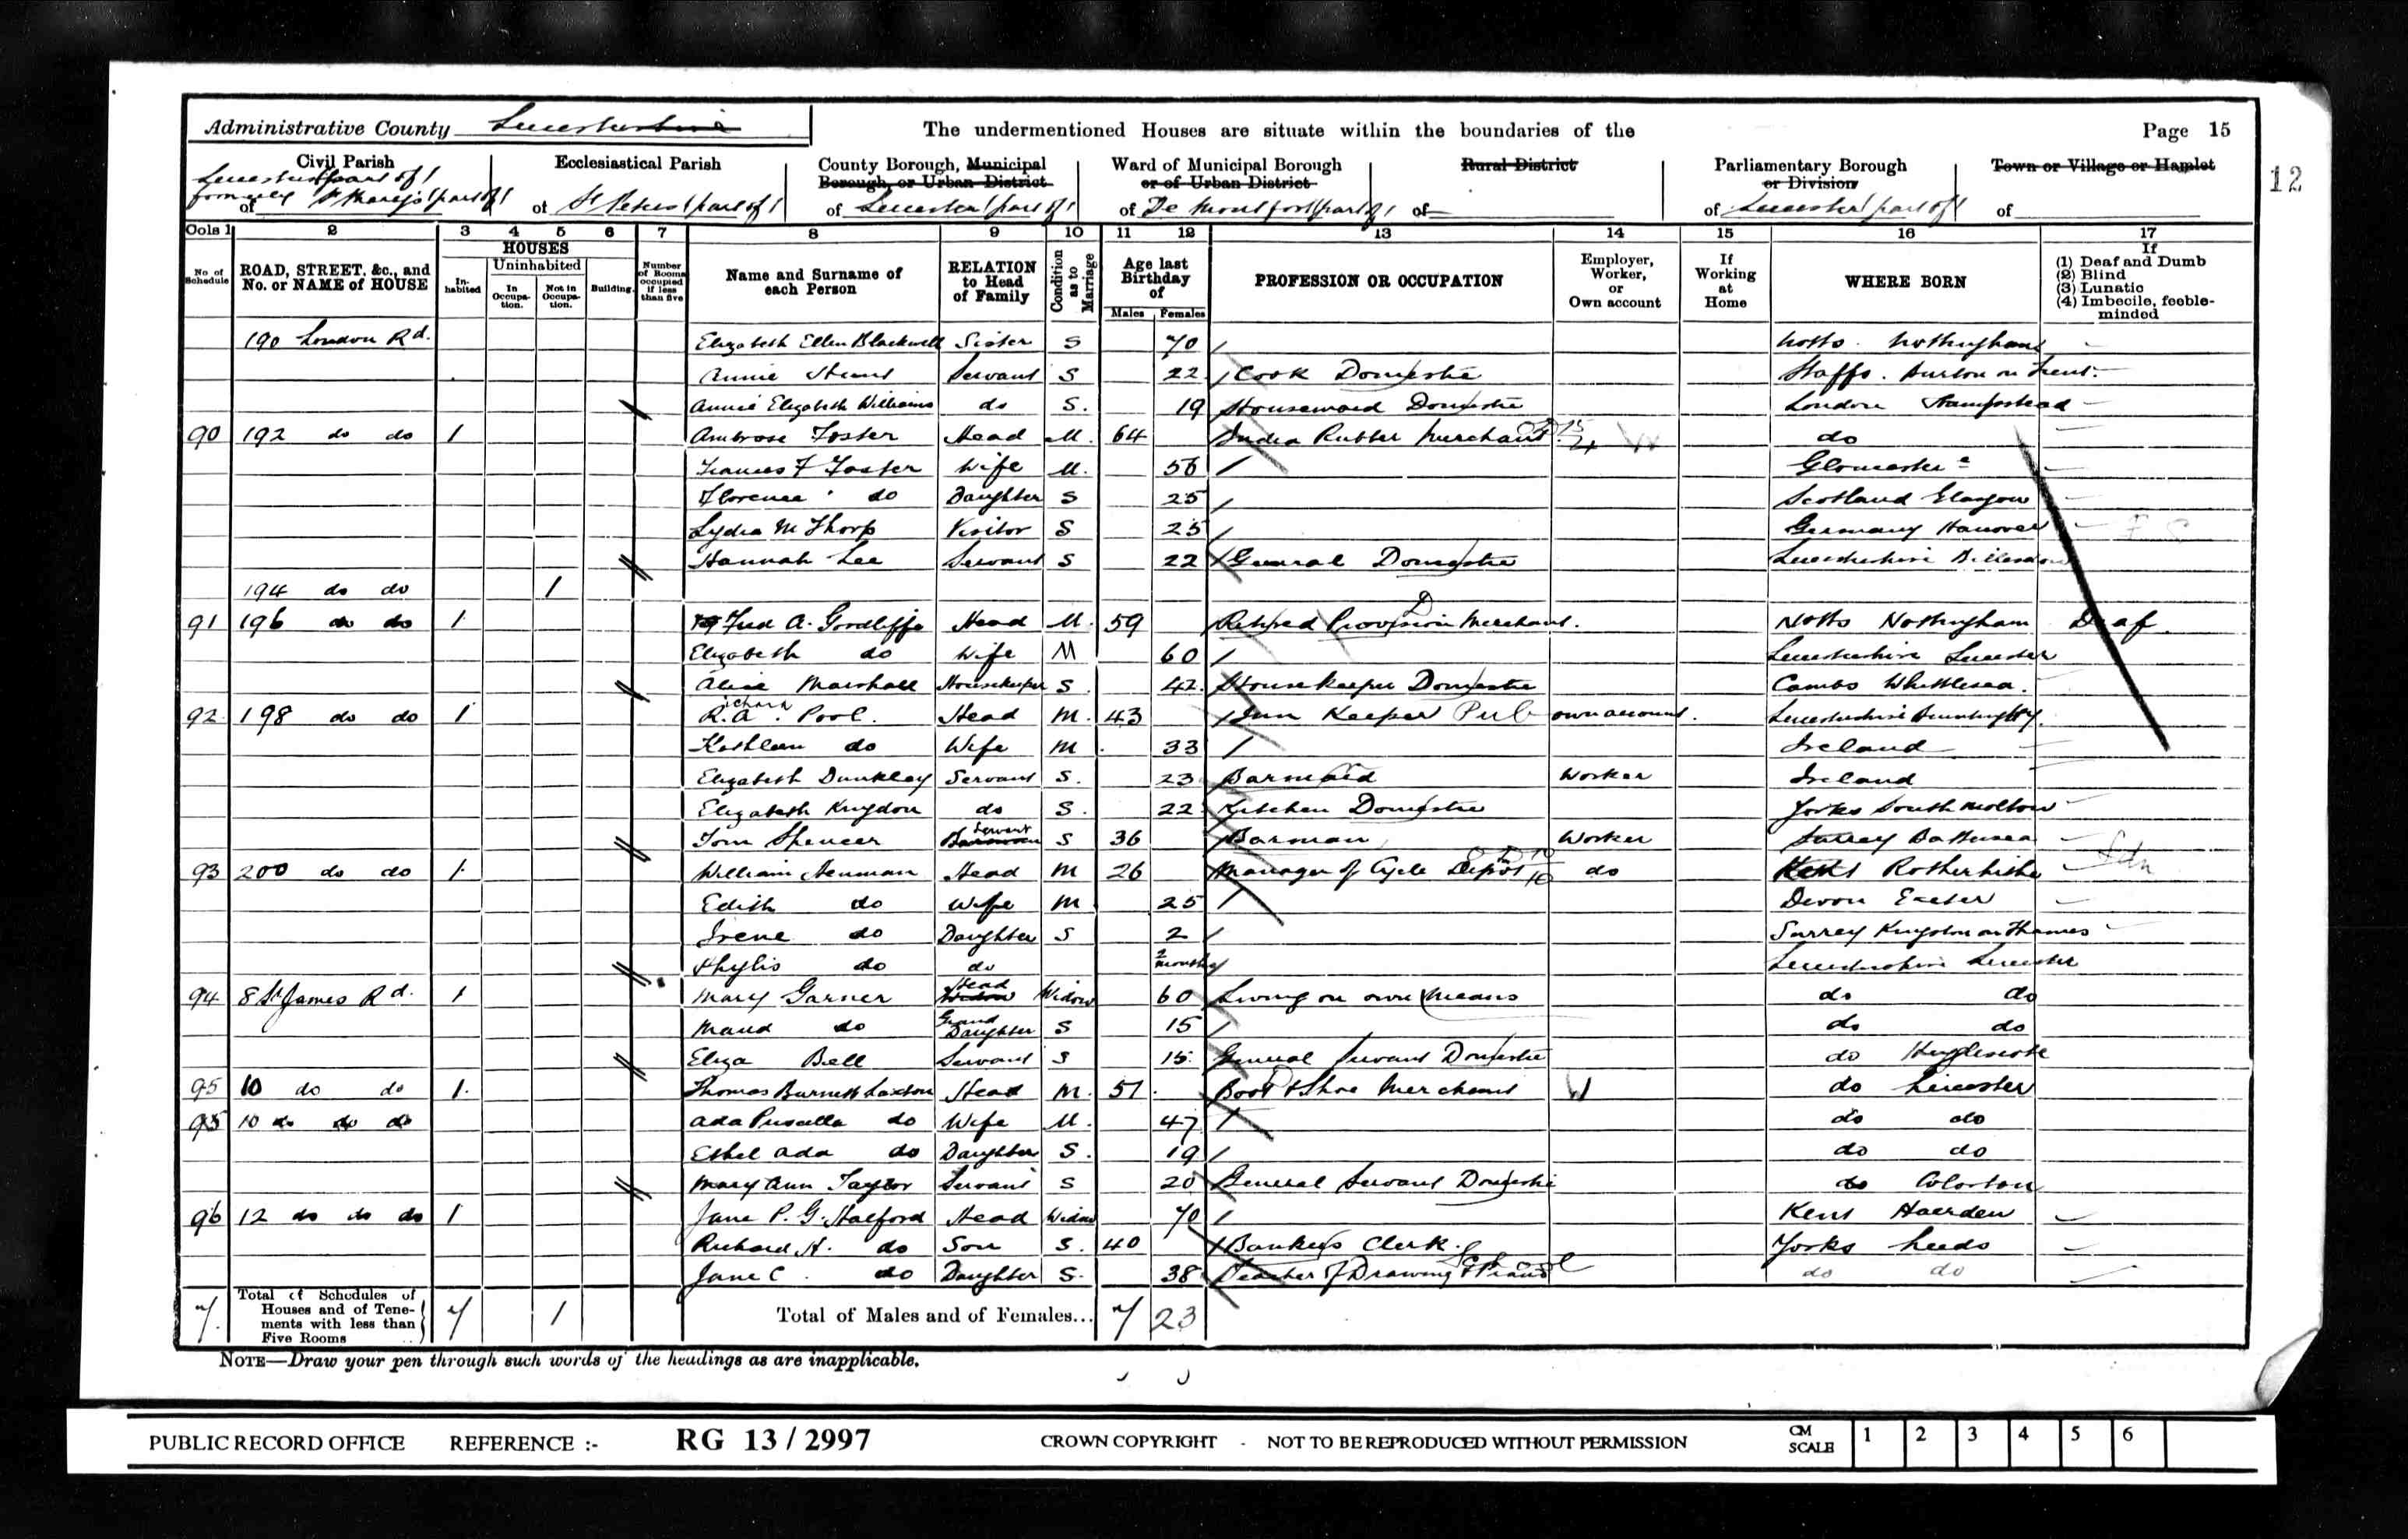 Administrative County Leicestershire
The undermentioned Houses are situate within the boundaries of the
Page 15
12
Civil Parish
Leicester (part of)
formerly St Mary's (part of)
of
Ecclesiastical Parish
of St Peters (part of)
County Borough, Municipal
Borough, or Urban District
of Leicester (part of)
Ward of Municipal Borough
or of Urban District
of De Montfort (part of)
Rural District
of
Parliamentary Borough
or Division
of Leicester (part of)
Town or Village or Hamlet
of
Cols 1 2 3 4 5 6 7 8 9 10 11 12 13 14 15 16 17
No of Schedule
ROAD, STREET, &c., and No. or NAME of HOUSE
HOUSES
Inhabited
Uninhabited
In Occupation.
Not in Occupation.
Building.
Number of Rooms occupied if less than five
Name and Surname of each Person
RELATION to Head of Family
Condition as to Marriage
Age last Birthday of
Males Females
PROFESSION OR OCCUPATION
Employer, Worker, or Own account
If Working at Home
WHERE BORN
If
(1) Deaf and Dumb
(2) Blind
(3) Lunatic
(4) Imbecile, feeble-minded
190 London Rd. Elizabeth Ellen Blackwell Sister S 70 Notts. Nottingham
Annie Servant S 22 Cook Domestic Staffs. Burton on Trent.
Annie Elizabeth Williams do S. 19 Housemaid Domestic London Hampstead
90 192 do do 1 Ambrose Foster Head M. 64 India Rubber Merchant do
Frances F Foster Wife M. 56
Florence do Daughter S 25 Scotland Glasgow
Lydia M Thorp Visitor S 25 Germany Hanover
Hannah Lee Servant S 22 General Domestic Leicestershire Billesdon
194 do do 1
91 196 do do 1 Fred A. Goodliffe Head M. 59 Retired Provision Merchant. Notts Nottingham Deaf
Elizabeth do Wife M 60 Leicestershire Leicester
Alice Marshall Housekeeper S 42 Housekeeper Domestic Cambs Whittlesea.
92 198 do do 1 Richard A. Pool. Head M. 43 Inn Keeper Pub own account. Leicestershire
Kathleen do Wife M. 33 Ireland
Elizabeth Dunkley Servant S. 23 Barmaid Worker Ireland
Elizabeth Kingdon do S. 22 Kitchen Domestic Yorks South Molton
Tom Spencer Servant S 36 Barman Worker Surrey Battersea
93 200 do do 1 William Henman Head M 26 Manager of Cycle Depot do Kent Rotherhithe
Edith do Wife M 25 Devon Exeter
Irene do Daughter S 2 Surrey Kingston on Thames
Phylis do do 2 months Leicestershire Leicester
94 8 St James Rd. 1 Mary Garner Head Widow 60 Living on own means do do
Maud do Grand Daughter S 15 do do
Eliza Bell Servant S 15 General Servant Domestic do
95 10 do do 1 Thomas Burnett Laxton Head M. 51 Boot & Shoe Merchant do Leicester
95 10 do do do Ada Priscilla do Wife M. 47 do do
Ethel Ada do Daughter S. 19 do do
Mary Ann Taylor Servant S 20 General Servant Domestic do Coleorton
96 12 do do do 1 Jane P. G. Halford Head Widow 70 Kent
Richard H. do Son S. 40 Bankers Clerk. Yorks Leeds
Jane C. do Daughter S. 38 Teacher of Drawing & Piano do do
7 Total of Schedules of Houses and of Tenements with less than Five Rooms 7 1 Total of Males and of Females... 7 23
NOTE—Draw your pen through such words of the headings as are inapplicable.
PUBLIC RECORD OFFICE REFERENCE :- RG 13 / 2997 CROWN COPYRIGHT - NOT TO BE REPRODUCED WITHOUT PERMISSION CM SCALE 1 2 3 4 5 6